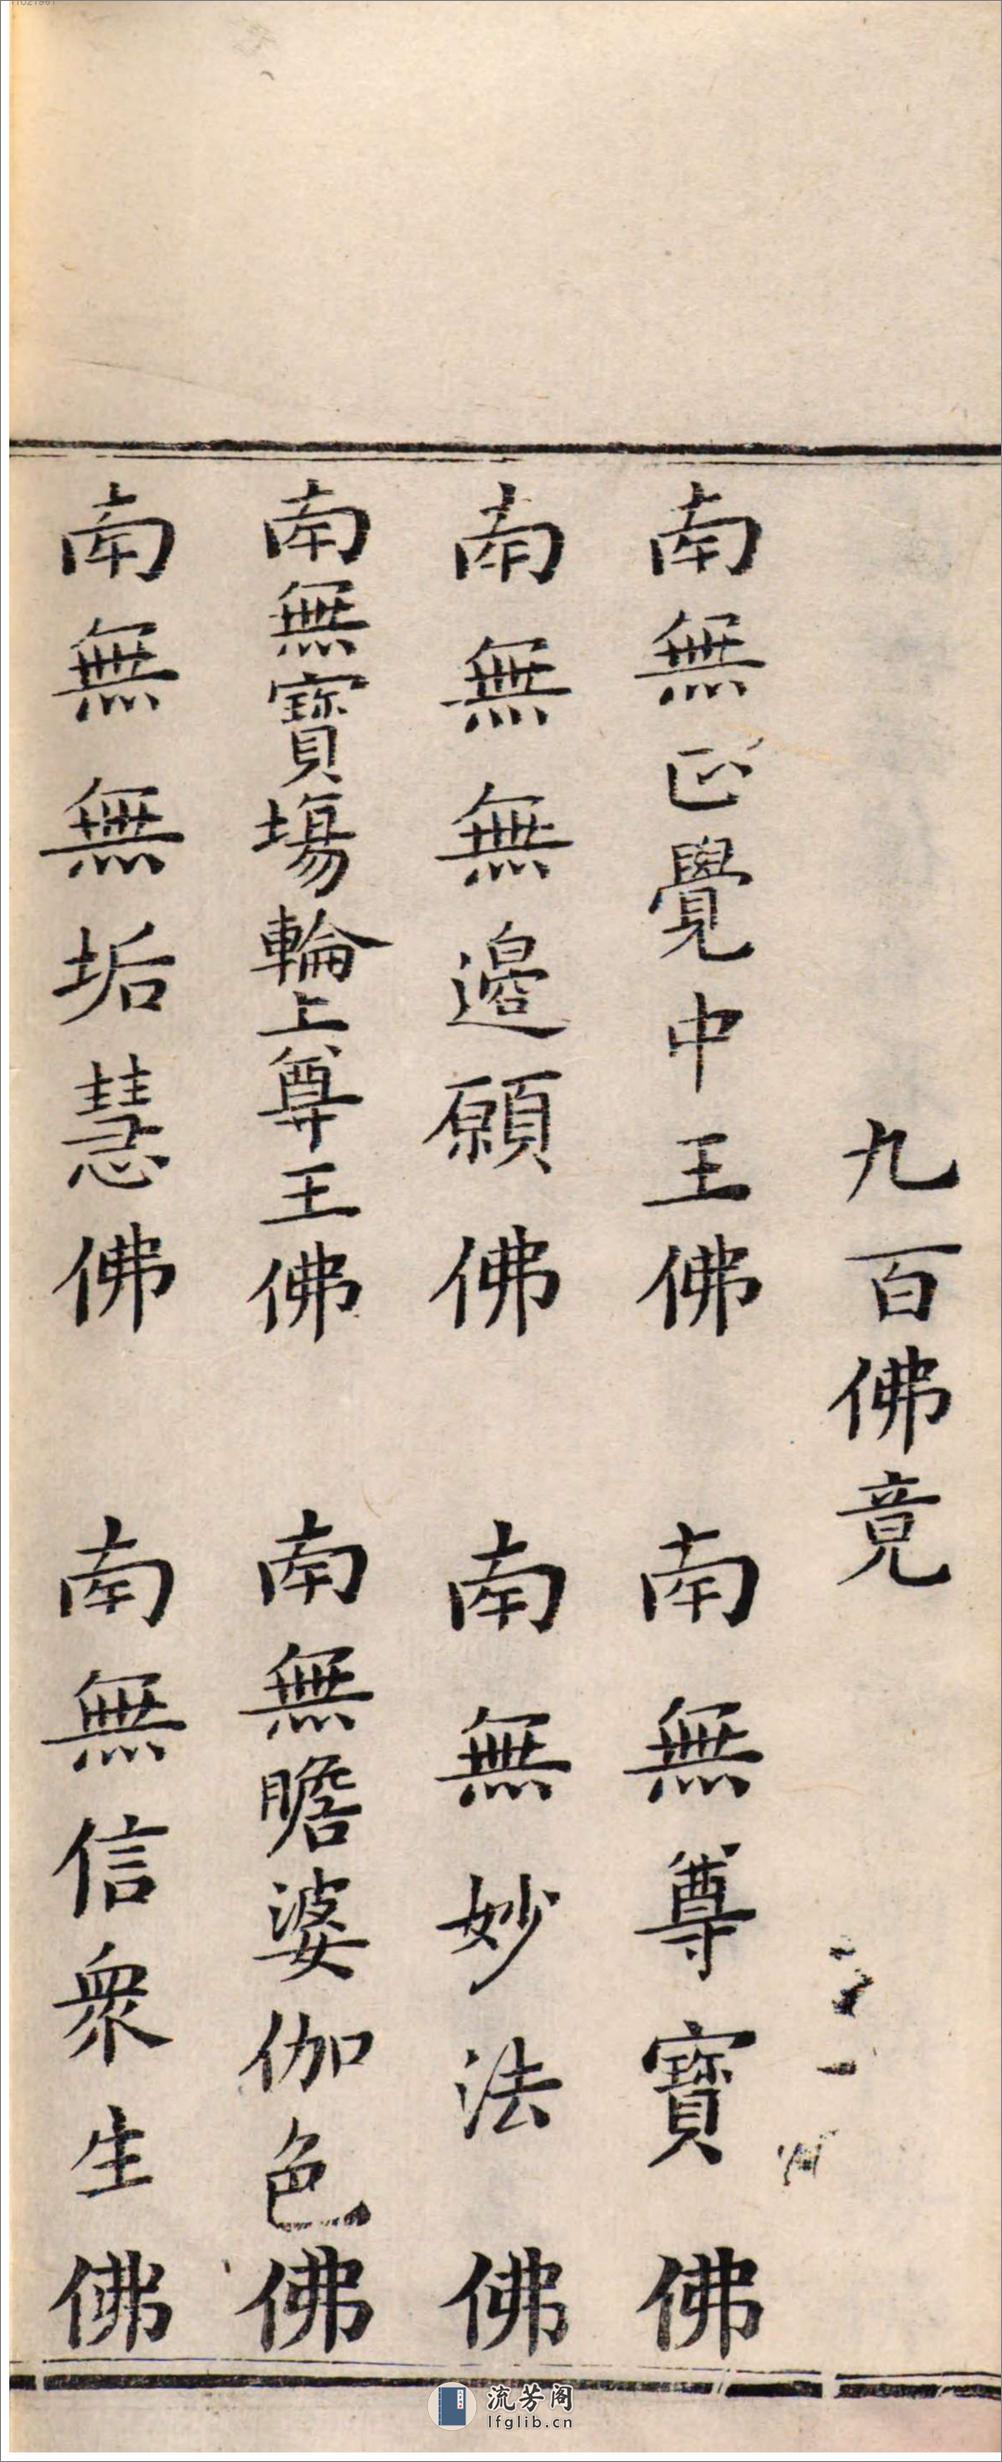 九百佛竟
南無正覺中王佛 南無尊寶佛
南無無邊願佛 南無妙法佛
南無寶塲輪上尊王佛 南無瞻婆伽色佛
南無無垢慧佛 南無信衆生佛
流芳阁
lfglib.cn